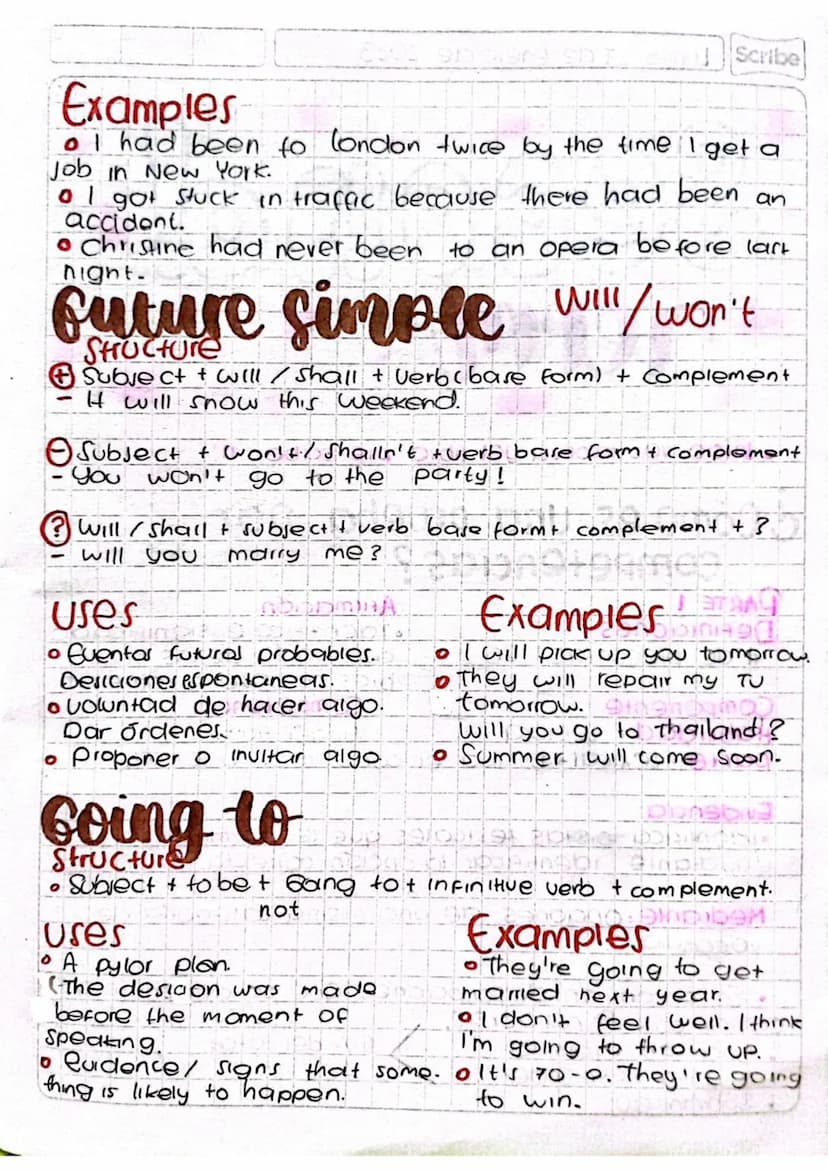 Scribe
Examples
• I had been to london twice by the time I get a
job in New York.
• I got stuck in traffic because there had been an
accident.
• Christine had never been to an opera before last
night.
future simple will / won't
Structure
+ Subject + will / shall + verb (base form) + complement
- It will snow this weekend.
- Subject + won't / shalln't + verb base form + complement
- You won't go to the party!
? Will / shall + subject + verb base form + complement + ?
- will you marry me?
Uses
• Eventos futuros probables.
Desiciones espontaneas.
• voluntad de hacer algo.
Dar órdenes.
• Proponer o invitar algo
Examples
• I will pick up you tomorrow.
• They will repair my TV
tomorrow.
will you go to Thailand?
• Summer will come soon.
Going to
Structure
• Subject + to be + Going to + infinitive verb + complement.
not
Uses
• A pylor plan.
(The desicion was made
before the moment of
speaking.
• Euidence / signs that some-
thing is likely to happen.
Examples
• They're going to get
married next year.
• I don't feel well. I think
I'm going to throw up.
• It's 70-0. They're going
to win.